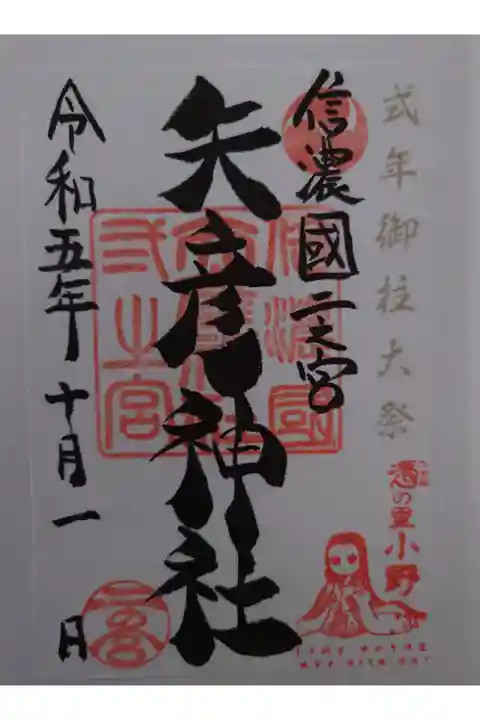 式年御柱大祭
信濃國二之宮
矢彦神社
令和五年十月一日
信濃國
弐之宮
憑の里
小野
二宮